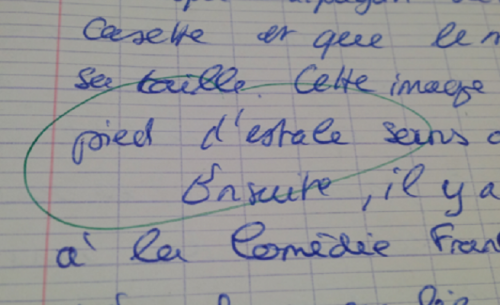 Casette et que le
sa taille. Cette image
pied d'estale sans
Ensuite, il y a
à la Comédie Fran